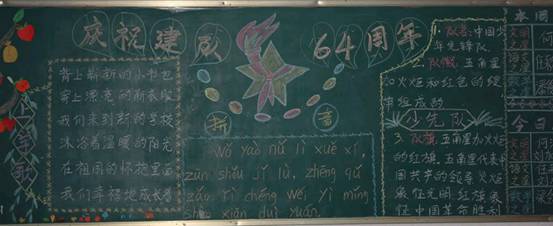 庆祝建队
64周年
背上新新的小书包
穿上漂亮的新衣服
我们来到新的学校
沐浴着温暖的阳光
在祖国的怀抱里面
我们幸福地成长着
拼音
Wǒ yào nǔ lì xué xí,
zūn shǒu jì lǜ, zhēng qǔ
zǎo rì chéng wéi yì míng
shào xiān duì yuán.
1. 队名:中国少
年先锋队
2. 队徽:五角星
火炬和红色的绶
带组成的
少先队
3. 队旗:五角星加火炬
的红旗,五角星代表中
国共产的领导火炬
象征光明,红旗象
征中国革命胜利
本周
今日